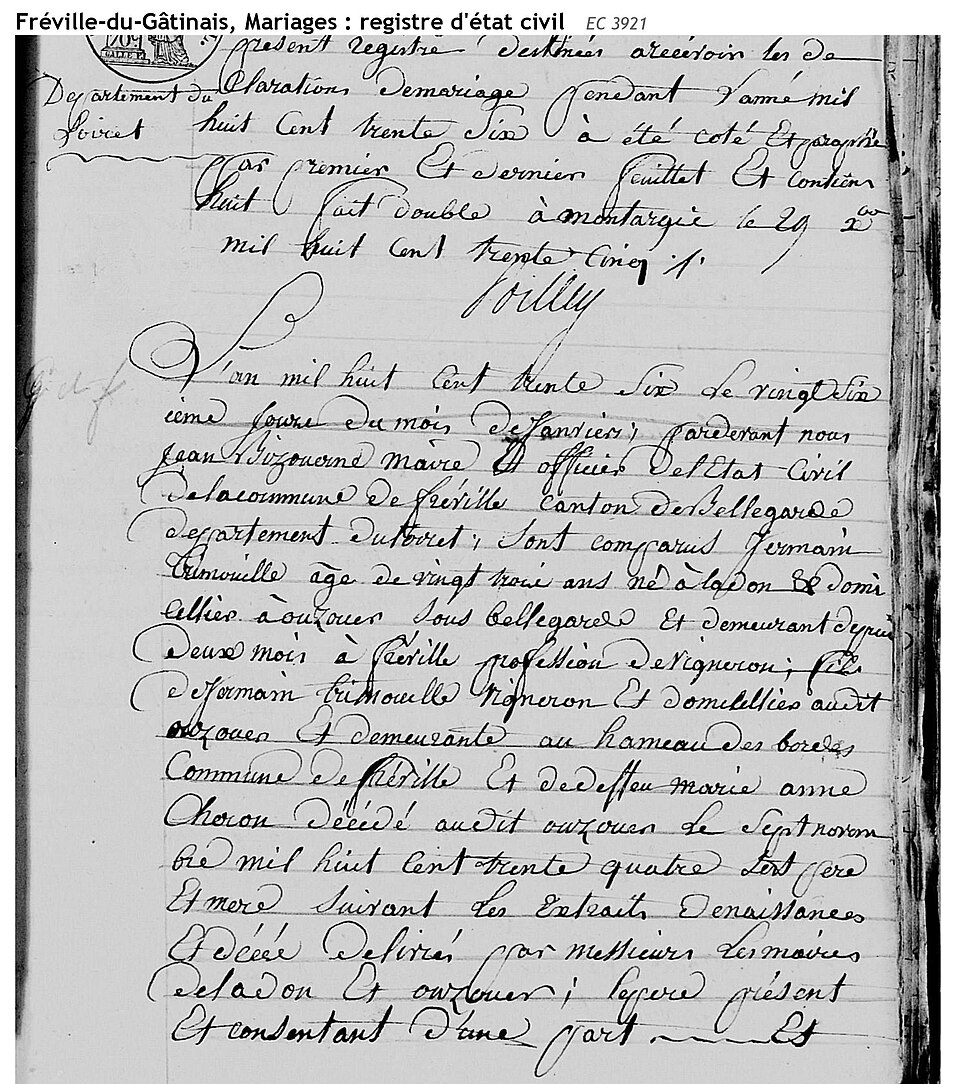 Fréville-du-Gâtinais, Mariages : registre d'état civil EC 3921
présent registre destinées arecevoir les de
Departement du clarations demariage pendant l'anné mil
Loiret huit Cent trente Six à été coté Et paraphé
par premier Et dernier feuillet Et contient
huit fait double à montargie le 29 xbre
mil huit Cent trente Cinq ./.
L'an mil huit Cent trente Six Le vingt Six
ieme Jour du mois de Janvier; pardevant nous
Jean Bizouerne maire Et officier del'Etat Civil
delacommune de fréville canton de Bellegarde
departement duloiret; Sont comparus Germain
trimouille âge de vingt troie ans né à ladon & domi
cillier à ouzouer Sous bellegarde Et demeurant depuie
deux mois à fréville profession devigneron; fils
de Germain trimouille vigneron Et domicillier audit
ouzouer Et demeurante au hameau des bordes
Commune de fréville Et dedeffeu marie anne
Choron décédé audit ouzouer Le Sept novem
bre mil huit Cent trente quatre Ses pere
Et mere Suivant Les Extraits denaissances
Et décée delivrés par messieurs Les maires
deladon Et ouzouer; lepere présent
Et consentant d'une part Et